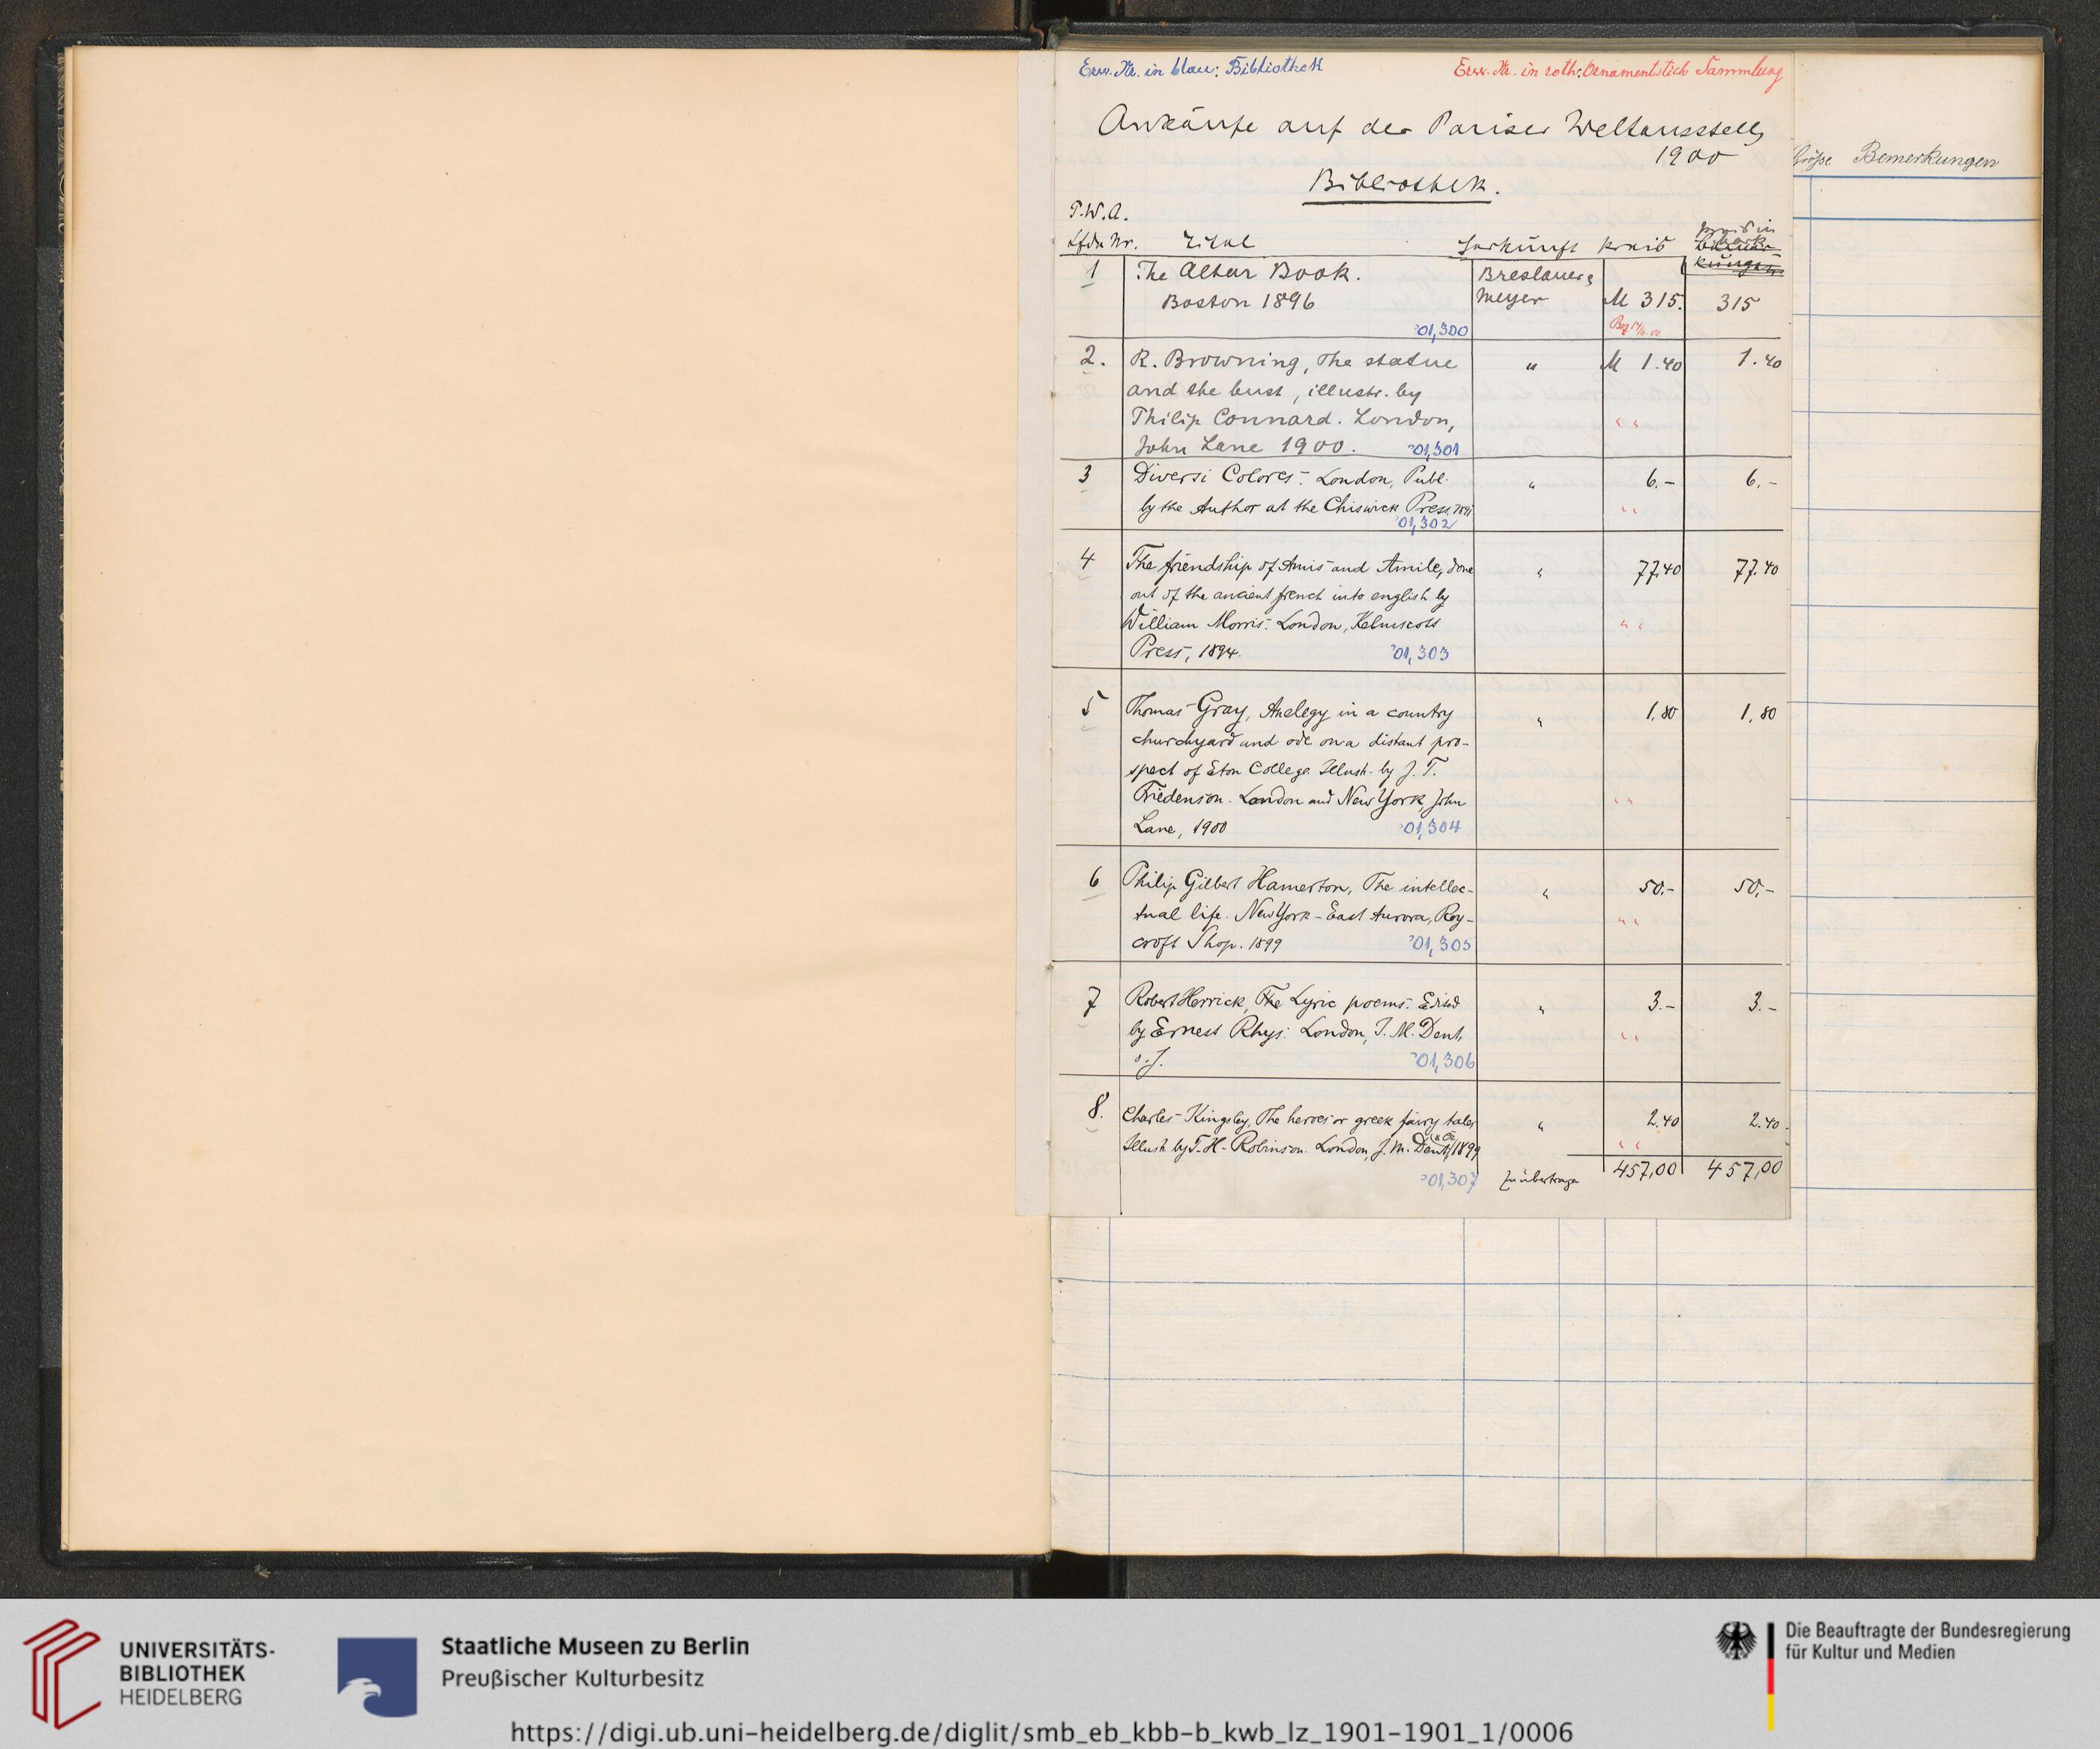 Erw. Nr. in blau: Bibliothek
Erw. Nr. in roth: Ornamentstich Sammlung
Ankäufe auf der Pariser Weltausstellg
1900
Bibliothek.
Größe Bemerkungen
P.W.A.
Lfde Nr. Titel Herkunft Preis Preis in Mark
1 The Altar Book. Breslauer &
Boston 1896 Meyer M 315. 315
'01,300
2. R. Browning, The statue " M 1.40 1.40
and the bust, illustr. by
Philip Connard. London, " "
John Lane 1900. '01,301
3 Diversi Colores. London, Publ. " 6.- 6.-
by the Author at the Chiswick Press, " "
'01,302
4 The friendship of Amis and Amile, done " 77.40 77.40
out of the ancient french into english by
William Morris. London, Kelmscott " "
Press, 1894. '01,303
5 Thomas Gray, An elegy in a country " 1,80 1,80
churchyard and ode on a distant pro-
spect of Eton College. Illustr. by J. T.
Friedenson. London and New York, John " "
Lane, 1900 '01,304
6 Philip Gilbert Hamerton, The intellec- " 50.- 50.-
tual life. New York - East Aurora, Roy- " "
croft Shop. 1899 '01,305
7 Robert Herrick, The Lyric poems. Edited " 3.- 3.-
by Ernest Rhys. London, J. M. Dent, " "
o. J. '01,306
8. Charles Kingsley, The heroes or greek fairy tales " 2.40 2.40
Illustr. by T. H. Robinson. London, J. M. Dent & Co, 1899 " "
'01,307 zu übertragen 457,00 457,00
UNIVERSITÄTS-
BIBLIOTHEK
HEIDELBERG
Staatliche Museen zu Berlin
Preußischer Kulturbesitz
Die Beauftragte der Bundesregierung
für Kultur und Medien
https://digi.ub.uni-heidelberg.de/diglit/smb_eb_kbb-b_kwb_lz_1901-1901_1/0006